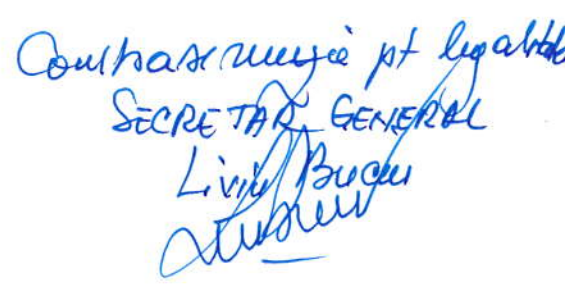 Contrasemnează pt legalitate
SECRETAR GENERAL
Liviu Bucur